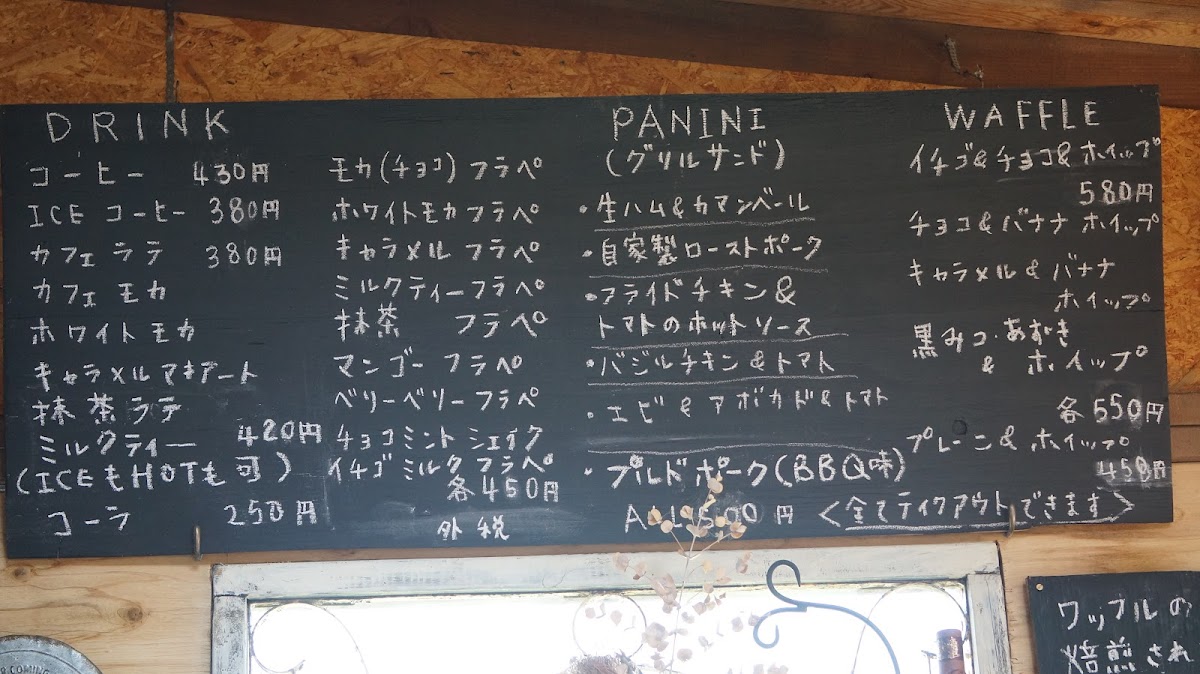 DRINK
コーヒー 430円
ICE コーヒー 380円
カフェ ラテ 380円
カフェ モカ
ホワイトモカ
キャラメルマキアート
抹茶ラテ
ミルクティー 420円
(ICEもHOTも可)
コーラ 250円
モカ(チョコ)フラペ
ホワイトモカフラペ
キャラメル フラペ
ミルクティーフラペ
抹茶 フラペ
マンゴー フラペ
ベリーベリーフラペ
チョコミント シェイク
イチゴミルク フラペ
各450円
外税
PANINI
(グリルサンド)
・生ハム&カマンベール
・自家製ローストポーク
・フライドチキン&
トマトのホットソース
・バジルチキン&トマト
・エビ&アボカド&トマト
・プルドポーク(BBQ味)
500円
<全てテイクアウトできます>
WAFFLE
イチゴ&チョコ&ホイップ
580円
チョコ&バナナホイップ
キャラメル&バナナ
ホイップ
黒みつ・あずき
&ホイップ
各550円
プレーン&ホイップ
450円
ワッフルの
焙煎され
COMING